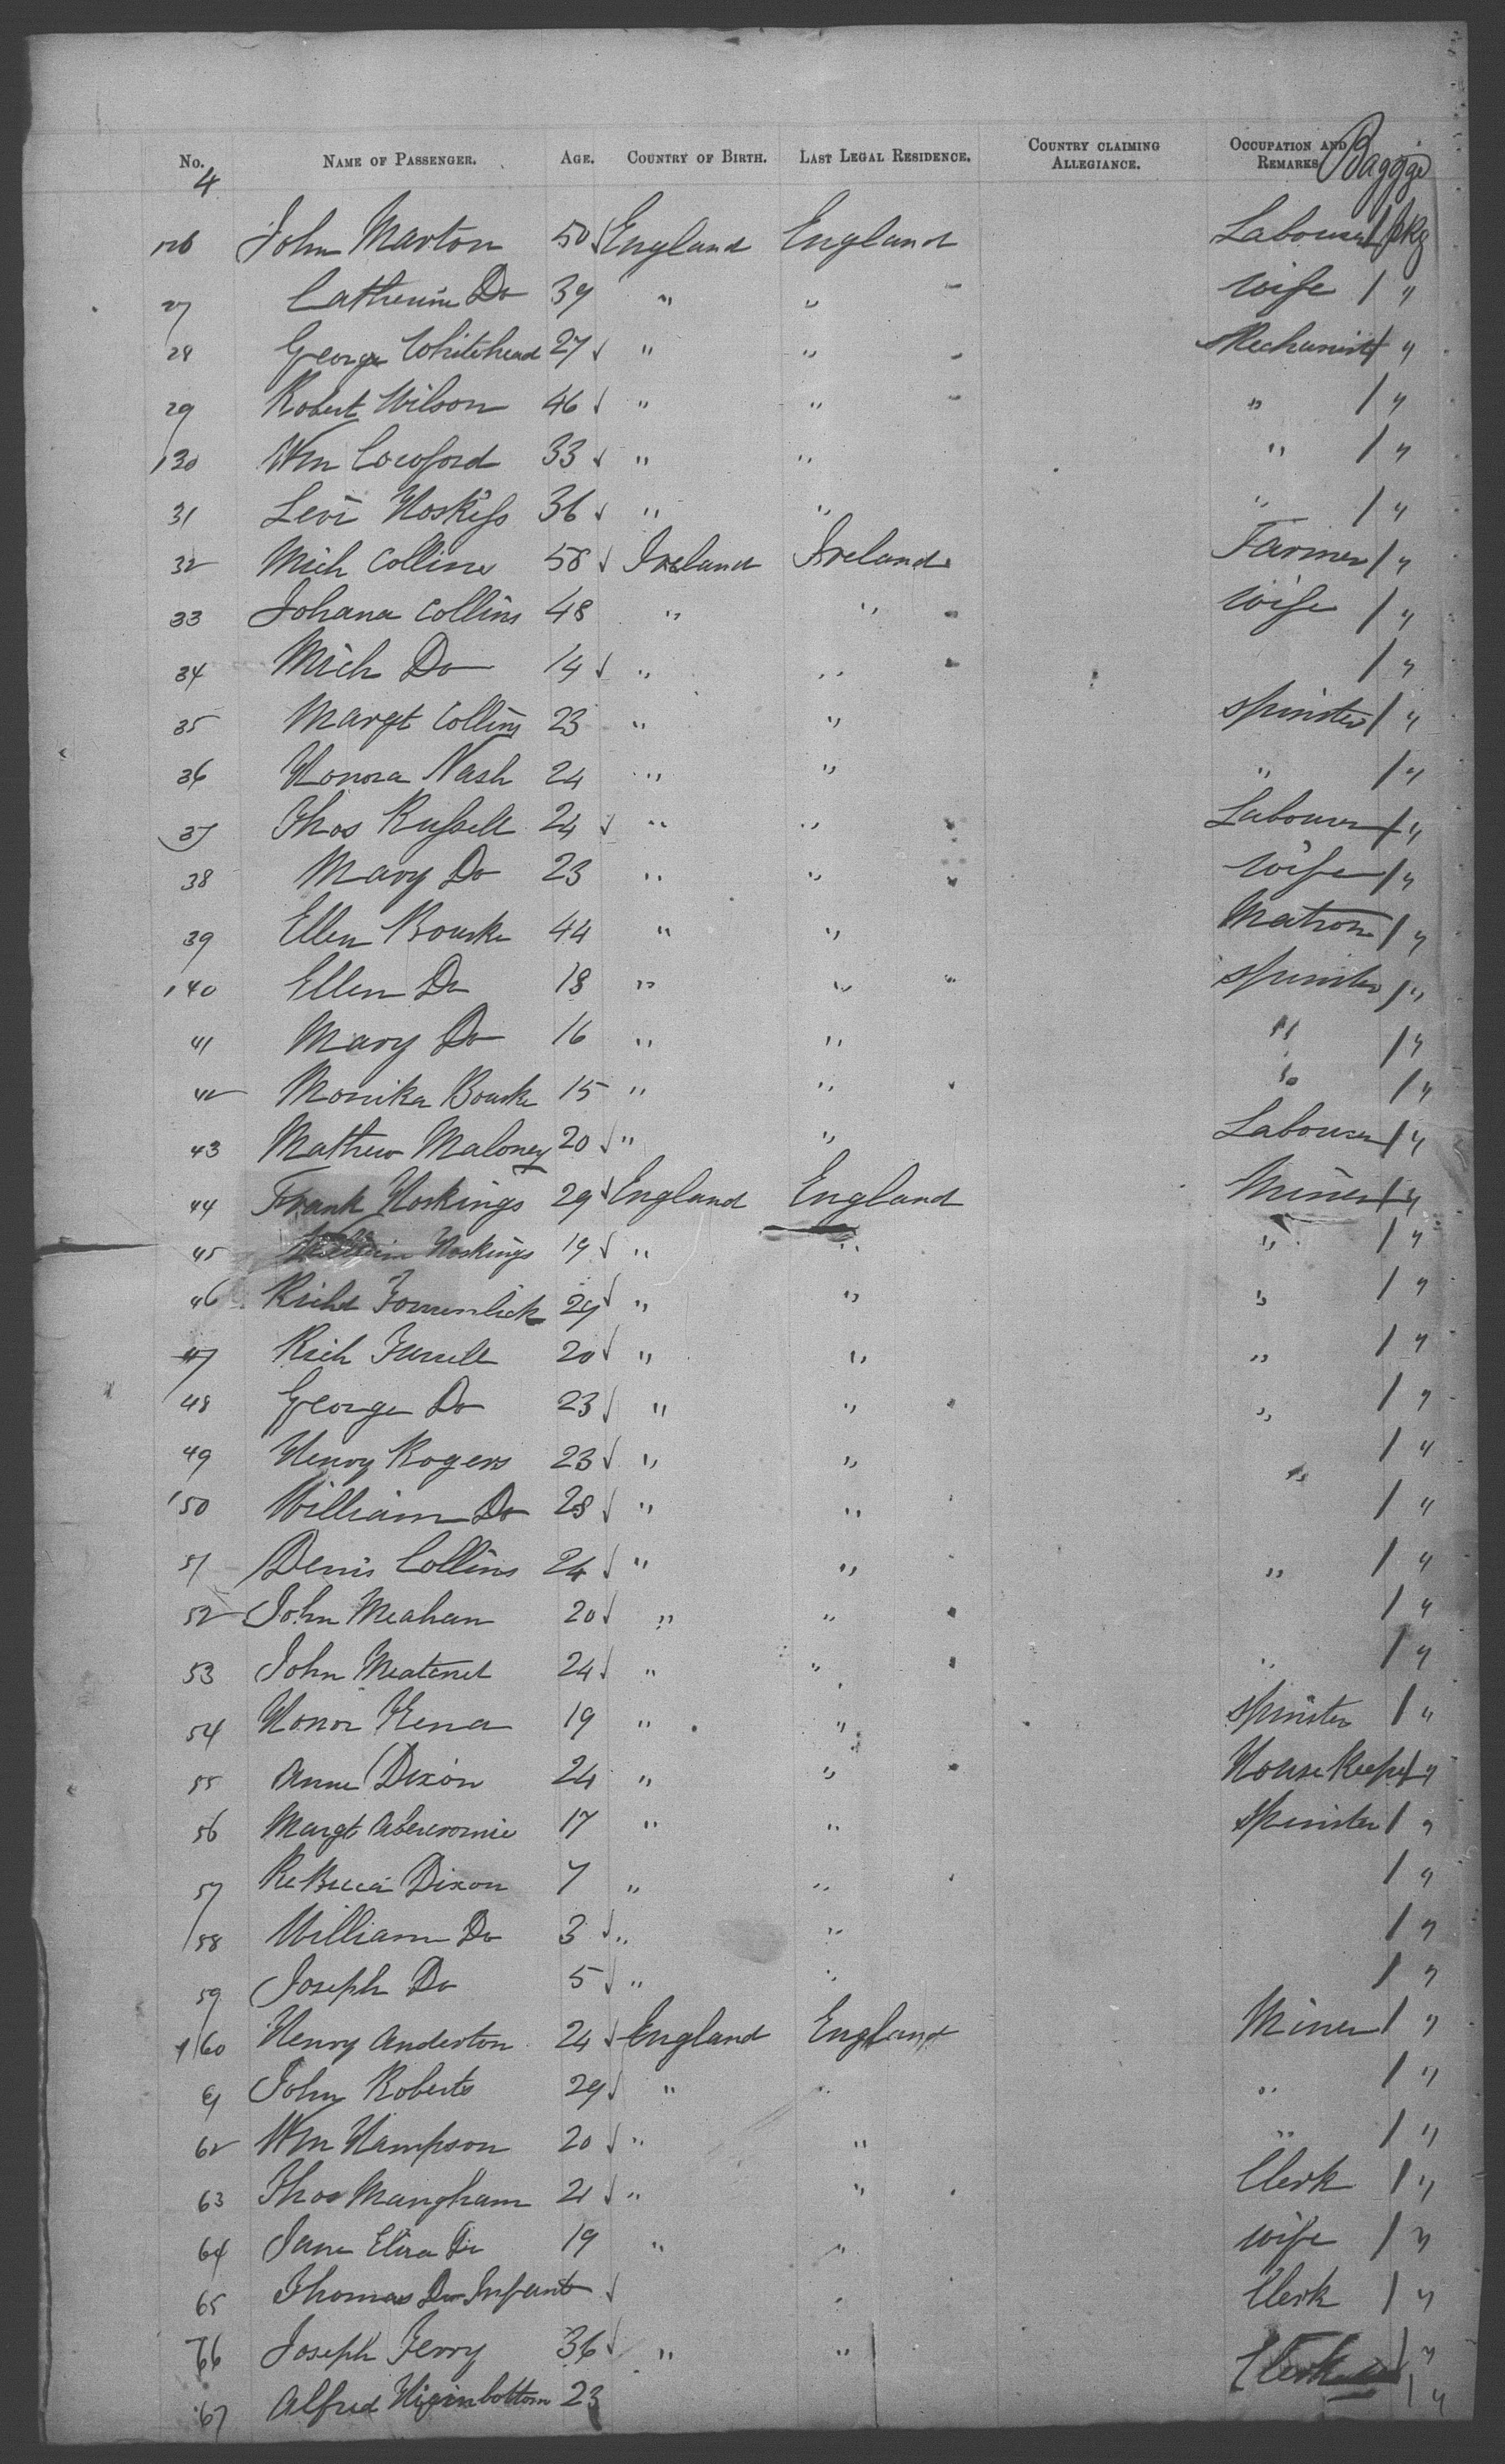 No. NAME OF PASSENGER. AGE. COUNTRY OF BIRTH. LAST LEGAL RESIDENCE. COUNTRY CLAIMING ALLEGIANCE. OCCUPATION AND REMARKS Baggge
4
126 John Marton 50 England England Labourer 1 pkg
27 Catherine Do 39 " " Wife 1 "
28 George Whitehead 27 " " Mechanist 1 "
29 Robert Wilson 46 " " " 1 "
130 Wm 33 " " " 1 "
31 Levi 36 " " " 1 "
32 Mich Collins 58 Ireland Ireland Farmer 1 "
33 Johana Collins 48 " " Wife 1 "
34 Mich Do 14 " " 1 "
35 Margt Collins 23 " " Spinster 1 "
36 Honora Nash 24 " " " 1 "
37 Thos Russell 24 " " Labourer 1 "
38 Mary Do 23 " " Wife 1 "
39 Ellen Bourke 44 " " Matron 1 "
140 Ellen Do 18 " " Spinster 1 "
41 Mary Do 16 " " " 1 "
42 Monika Bourke 15 " " " 1 "
43 Mathew Maloney 20 " " Labourer 1 "
44 Frank Hoskings 29 England England Miner 1 "
45 William Hoskings 19 " " " 1 "
46 Richd 29 " " " 1 "
47 Rich 20 " " " 1 "
48 George Do 23 " " " 1 "
49 Henry Rogers 23 " " " 1 "
150 William Do 28 " " 1 "
51 Denis Collins 24 " " " 1 "
52 John Meahan 20 " " 1 "
53 John 24 " " " 1 "
54 Honor 19 " " Spinster 1 "
55 Anne Dixon 24 " " House Keeper 1 "
56 Margt Abercromie 17 " " Spinster 1 "
57 Rebecca Dixon 7 " " 1 "
58 William Do 3 " " 1 "
59 Joseph Do 5 " " 1 "
160 Henry Anderton 24 England England Miner 1 "
61 John Roberts 29 " " " 1 "
62 Wm Hampson 20 " " " 1 "
63 Thos Mangham 21 " " Clerk 1 "
64 Jane Eliza Do 19 " " Wife 1 "
65 Thomas Do Infant " Clerk 1 "
66 Joseph Ferry 36 " " Clerk 1 "
67 Alfred Higinbottom 23 1 "